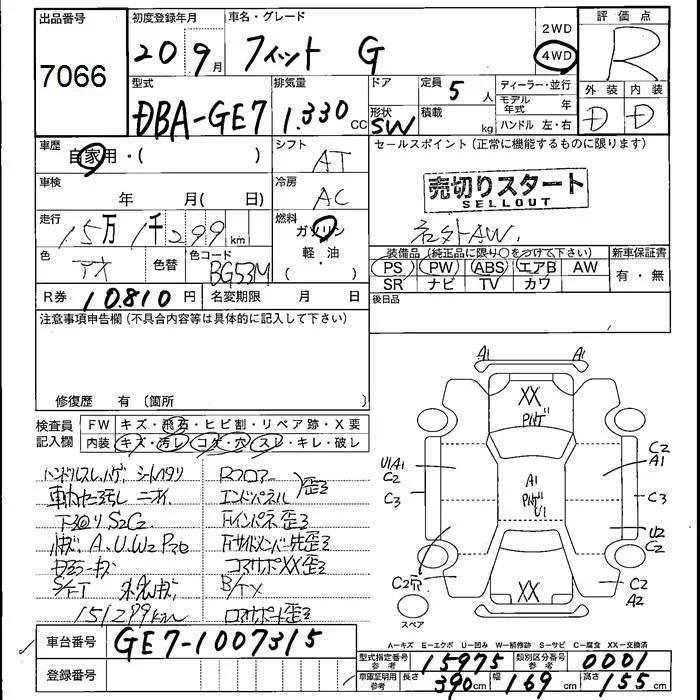 出品番号
7066
初度登録年月
20 9月
車名・グレード
フィット G
2WD
4WD
評価点
R
外装 内装
D D
型式
DBA-GE7
排気量
1.330 CC
ドア
形状
SW
定員 5 人
積載 kg
ディーラー・並行
モデル年式 年
ハンドル 左・右
車歴
自家用・( )
シフト
AT
セールスポイント(正常に機能するものに限ります)
売切りスタート
SELLOUT
社外AW.
車検
年 月( 日)
冷房
AC
走行
15万1千299 km
燃料
ガソリン
軽・油
( )
色
色替
色コード
BG53M
装備品(純正品に限り○をつけて下さい)
PS PW ABS エアB AW
SR ナビ TV カワ
新車保証書
有・無
R券 10.810円
名変期限 月 日
後日品
注意事項申告欄(不具合内容等は具体的に記入して下さい)
修復歴 有(箇所 )
検査員記入欄
FW キズ・飛石・ヒビ割・リペア跡・X要
内装 キズ・汚レ・コゲ・穴・スレ・キレ・破レ
ハンドルスレ,ハゲ
下廻りS2C2
A.U.W2
151299km
Rフロアー
エンドパネル
歪ミ
B/TX
A1 A1
XX
A1
U1
U1A1
C2
C3
C2
A1
C3
U2
C2
C2
C2
A2
XX
スペア
A-キズ E-エクボ U-凹み W-補修跡 S-サビ C-腐食 XX-交換済
車台番号 GE7-1007315
登録番号
型式指定番号参考 15975
類別区分番号参考 0001
車庫証明用参考 長さ 390cm 幅 169cm 高さ 155cm